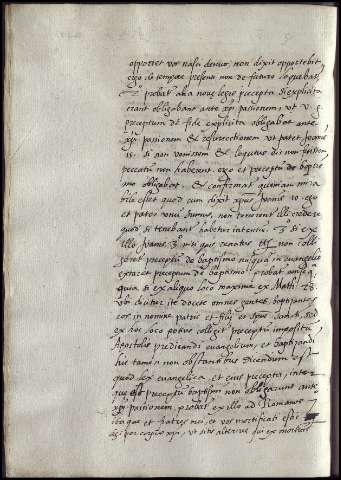 oportet vos nasci denuo, non dixit opportebit
ergo de tempore presenti non de futuro loquebat
probat alia noue legis precepta si explicita
erant obligabant ante xpi passionem, ut v. g.
preceptum de fide explicita obligabat ante
xpi passionem et resurrectionem ut patet Joannis
15. si non venissem et loquutus eis non fuissem
peccatum non haberent. ergo et preceptum de baptis
mo obligabat. et confirmat quoniam mira
bile esset quod cum dixit xpus Joannis 10. ego
et pater unum sumus, non tenerent illi credere
quod si tenebant habetur intentum. 3 si ex
illo Joannis 3. nisi quis renatus non colli
geret preceptum de baptismo nusquam in euangelio
extaret preceptum de baptismo probat
quia si ex aliquo loco maxime ex Matth. 28
ubi dicitur ite docete omnes gentes, baptizantes
eos in nomine patris et filij et spus sancti, sed
ex hoc loco potius colligit preceptum impositum
Apostolis predicandi euangelium, et baptizandi
his tamen non obstantibus Dicendum est
quod lex euangelica et eius precepta, inter
que est preceptum baptismi non obligarunt ante
xpi passionem probat ex illo ad Romanos
itaque et fratres mei, et vos mortificati estis
legi per corpus xpi, ut sitis alterius qui ex mortuis